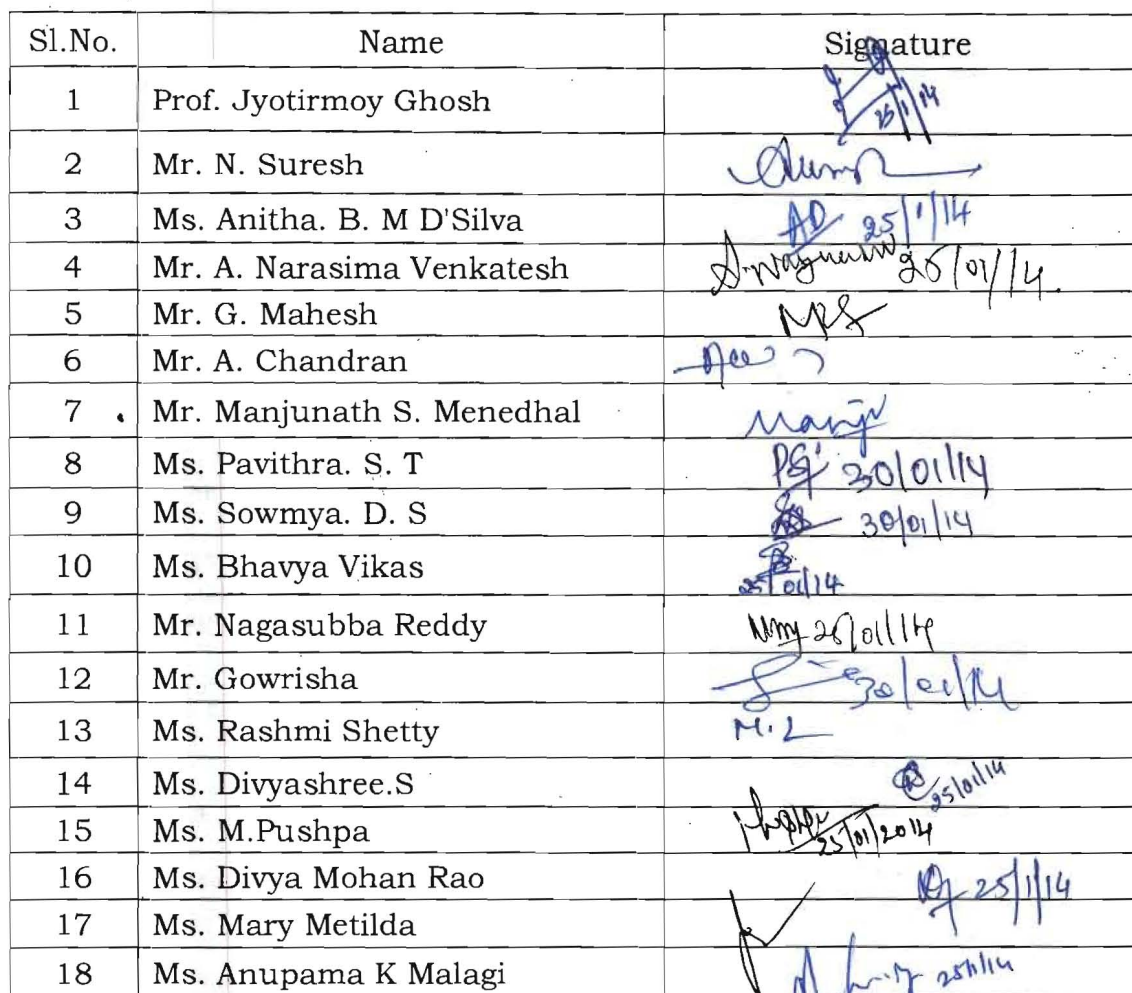 Sl.No. Name Signature
1 Prof. Jyotirmoy Ghosh 25/1/14
2 Mr. N. Suresh
3 Ms. Anitha. B. M D'Silva AD 25/1/14
4 Mr. A. Narasima Venkatesh
5 Mr. G. Mahesh
6 Mr. A. Chandran
7 Mr. Manjunath S. Menedhal Manju
8 Ms. Pavithra. S. T 30/01/14
9 Ms. Sowmya. D. S 30/01/14
10 Ms. Bhavya Vikas 25/01/14
11 Mr. Nagasubba Reddy
12 Mr. Gowrisha 30/01/14
13 Ms. Rashmi Shetty M.L
14 Ms. Divyashree.S 25/01/14
15 Ms. M.Pushpa 25/01/2014
16 Ms. Divya Mohan Rao 25/1/14
17 Ms. Mary Metilda
18 Ms. Anupama K Malagi